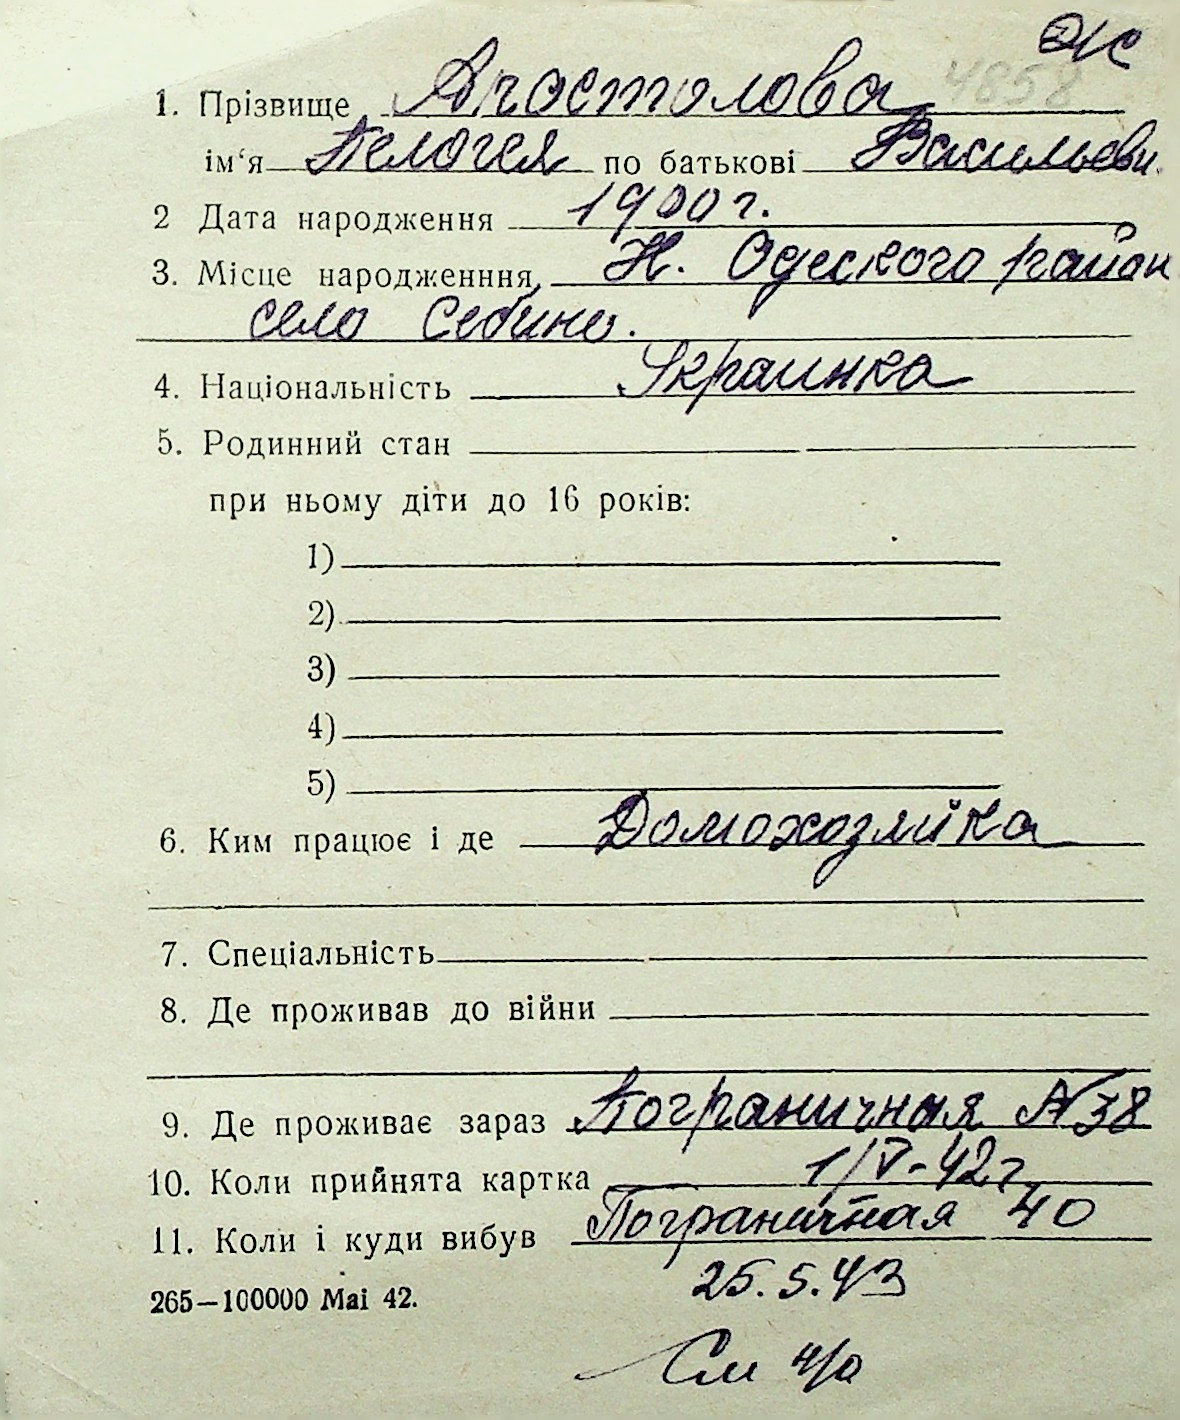 ЭК
4858
1. Прізвище Апостолова
ім‘я Пелогея по батькові Васильевн.
2 Дата народження 1900 г.
3. Місце народженння, Н. Одеского район
село Себино.
4. Національність Украинка
5. Родинний стан
при ньому діти до 16 років:
1)
2)
3)
4)
5)
6. Ким працює і де Домохозяйка
7. Спеціальність
8. Де проживав до війни
9. Де проживає зараз Пограничная № 38
10. Коли прийнята картка 1/V-42 г
11. Коли і куди вибув Пограничная 40
265—100000 Mai 42. 25.5.43
См н/о